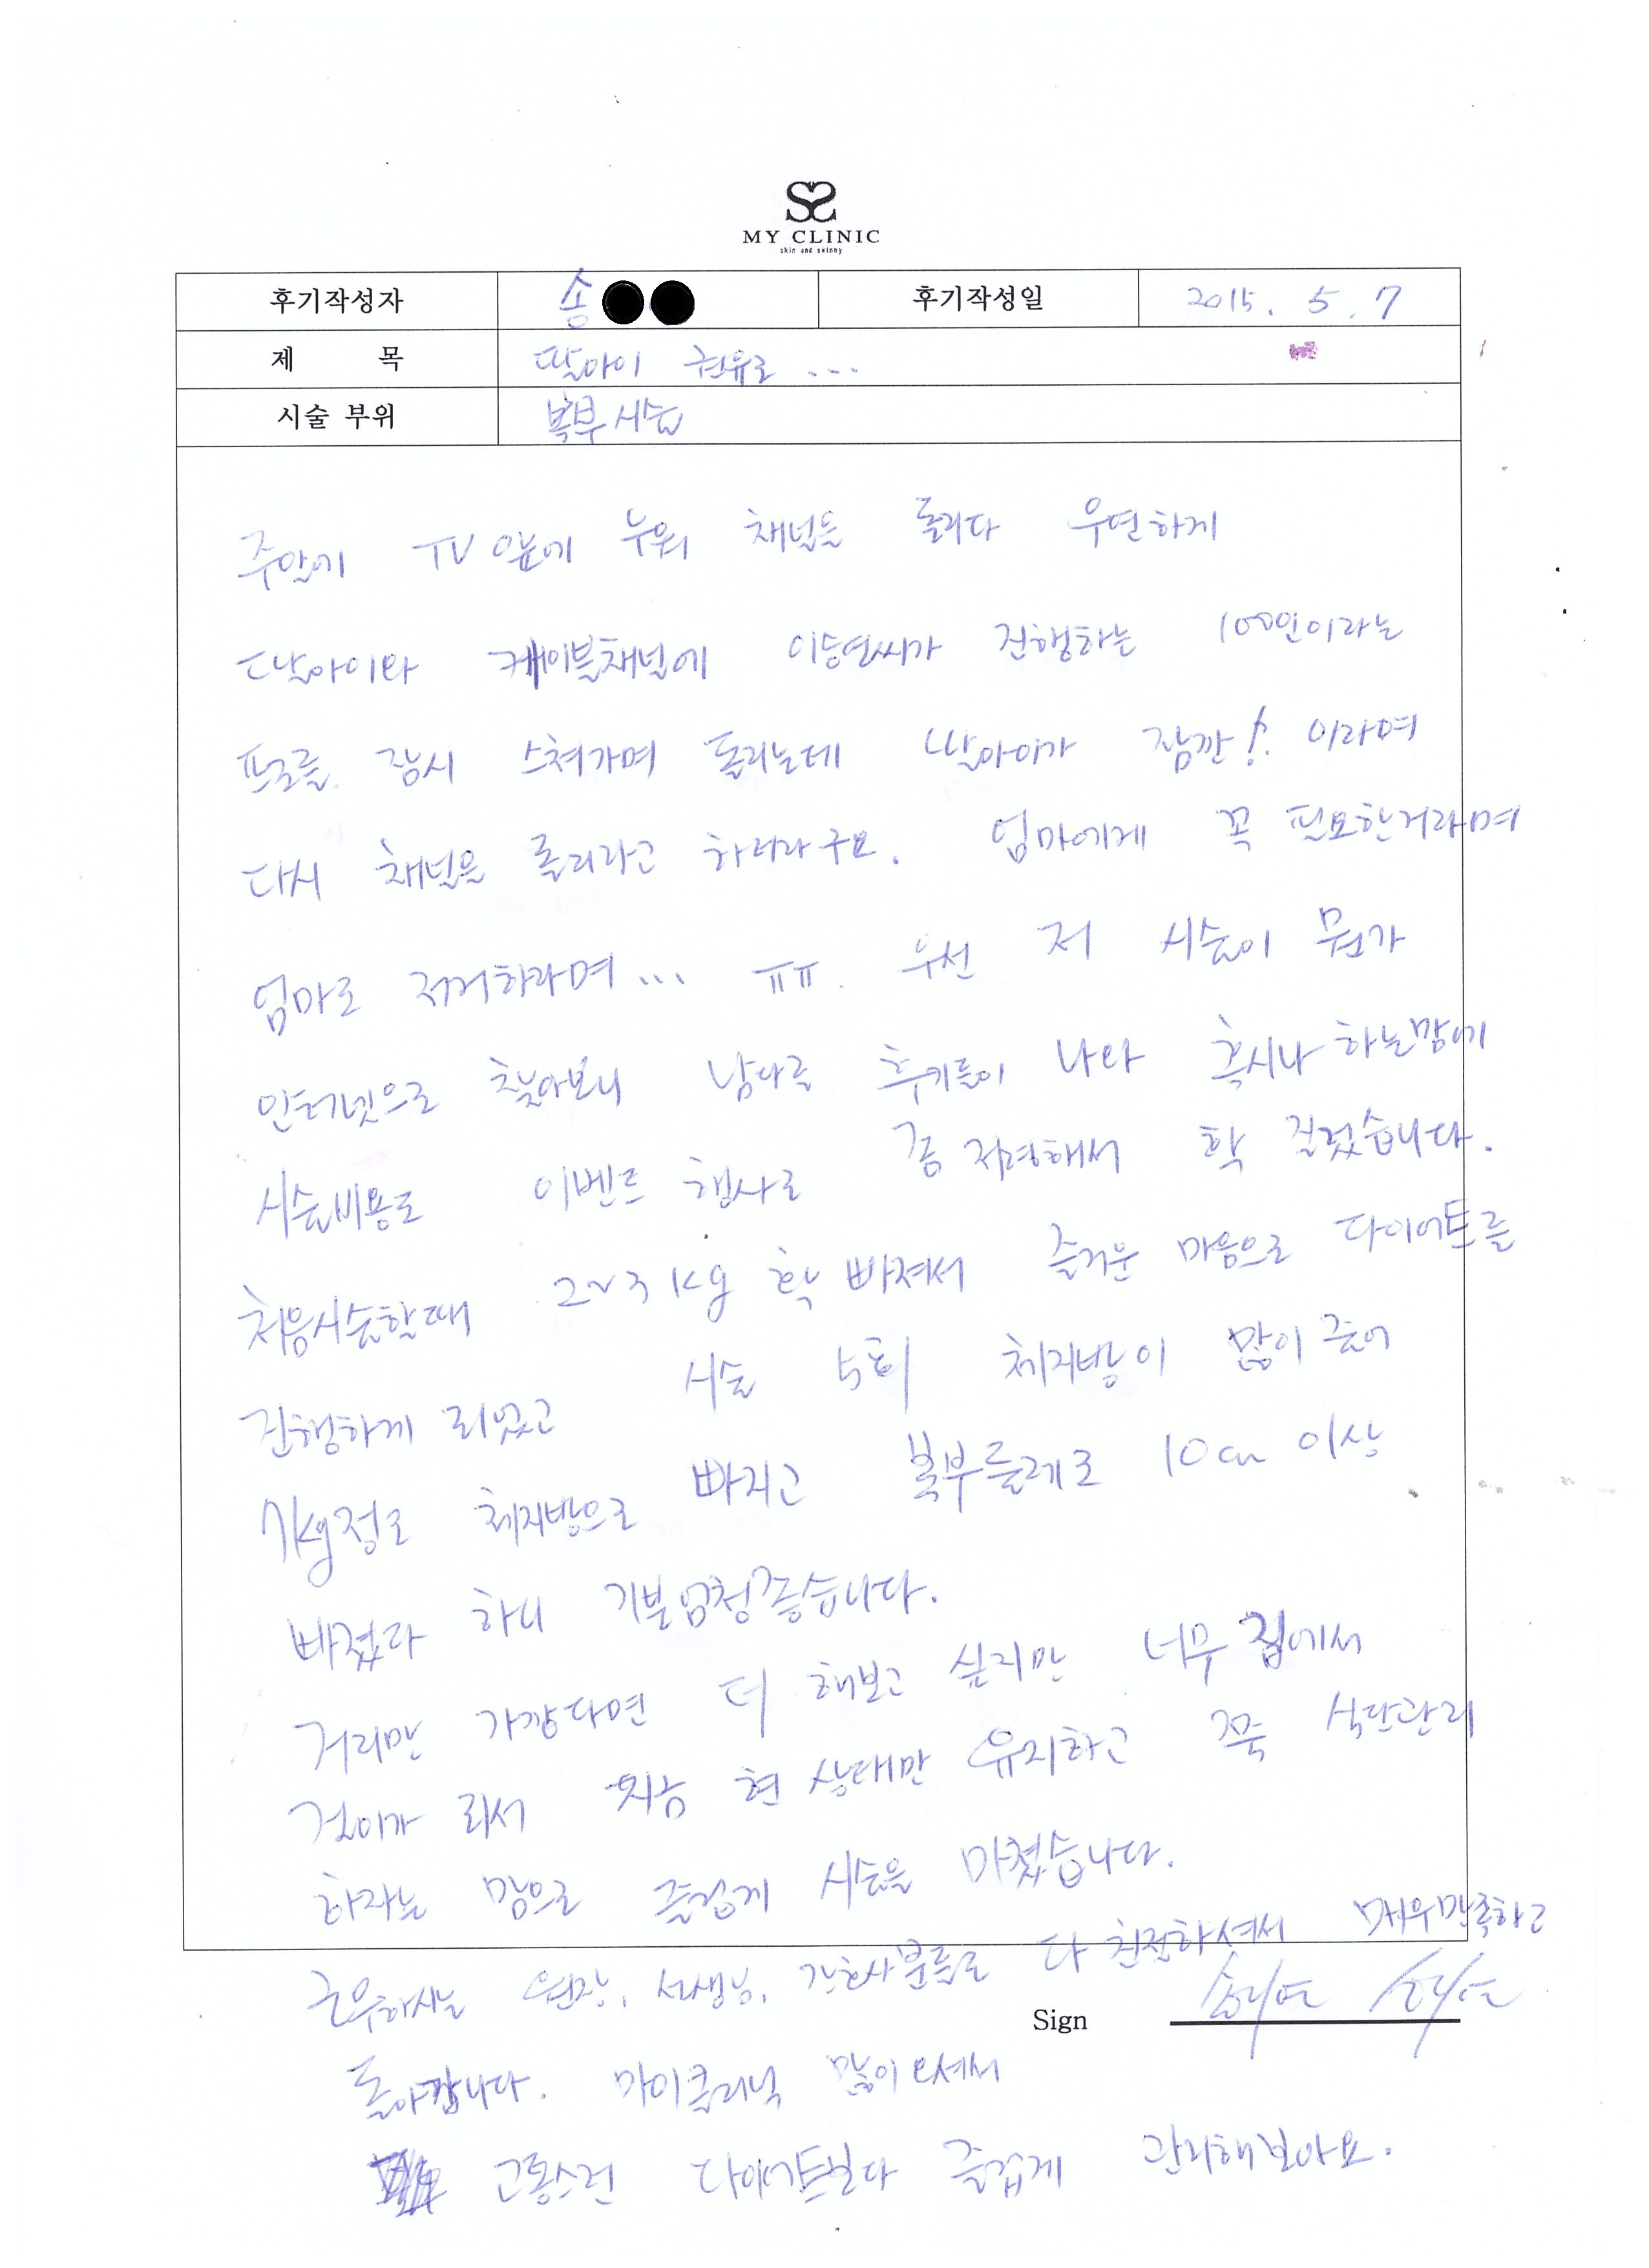 MY CLINIC
skin and skinny
후기작성자 송 후기작성일 2015. 5. 7
제 목 딸아이 권유로 ...
시술 부위 복부시술
주말에 TV앞에 누워 채널을 돌리다 우연하게
딸아이와 케이블채널에 이승연씨가 진행하는 100인이라는
프로를 잠시 스쳐가며 돌리는데 딸아이가 잠깐! 이라며
다시 채널을 돌리라고 하더라구요. 엄마에게 꼭 필요한거라며
엄마도 저거하라며... ㅠㅠ. 우선 저 시술이 뭔가
인터넷으로 찾아보니 남다른 후기들이 나와 혹시나 하는맘에
시술비용도 이벤트 행사로 좀 저렴해서 확 질렀습니다.
처음시술할때 2~3kg 확 빠져서 즐거운 마음으로 다이어트를
진행하게 되었고 시술 5회 체지방이 많이 줄어
7kg정도 체지방으로 빠지고 복부둘레도 10cm 이상
빠졌다 하니 기분엄청좋습니다.
거리만 가깝다면 더 해보고 싶지만 너무 집에서
멀이가 되서 지금 현 상태만 유지하고 쭉 식단관리
하자는 맘으로 즐겁게 시술을 마쳤습니다.
근무하시는 원장, 선생님, 간호사분들도 다 친절하셔서 매우만족하고
Sign
돌아갑니다. 마이클리닉 많이오셔서
고통스런 다이어트보다 즐겁게 관리해보아요.